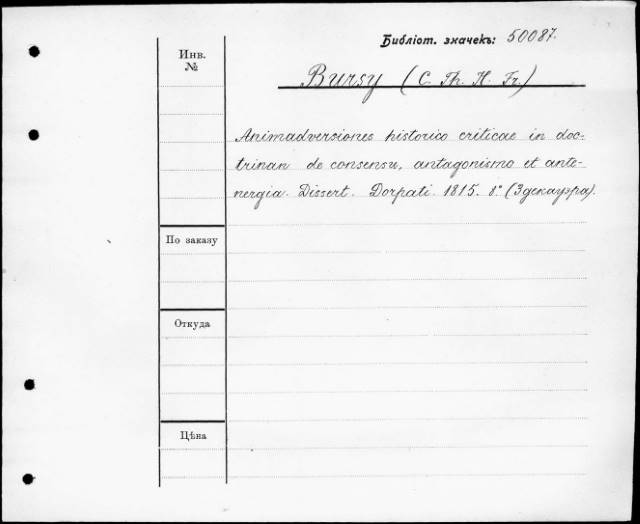 Библіот. значекъ: 50087.
Инв.
№
Bursy (C. Th. H. Fr.)
Animadversiones historico criticae in doc-
trinan de consensu, antagonismo et ante-
nergia. Dissert. Dorpati. 1815. 8° (Здекауэра).
По заказу
Откуда
Цѣна